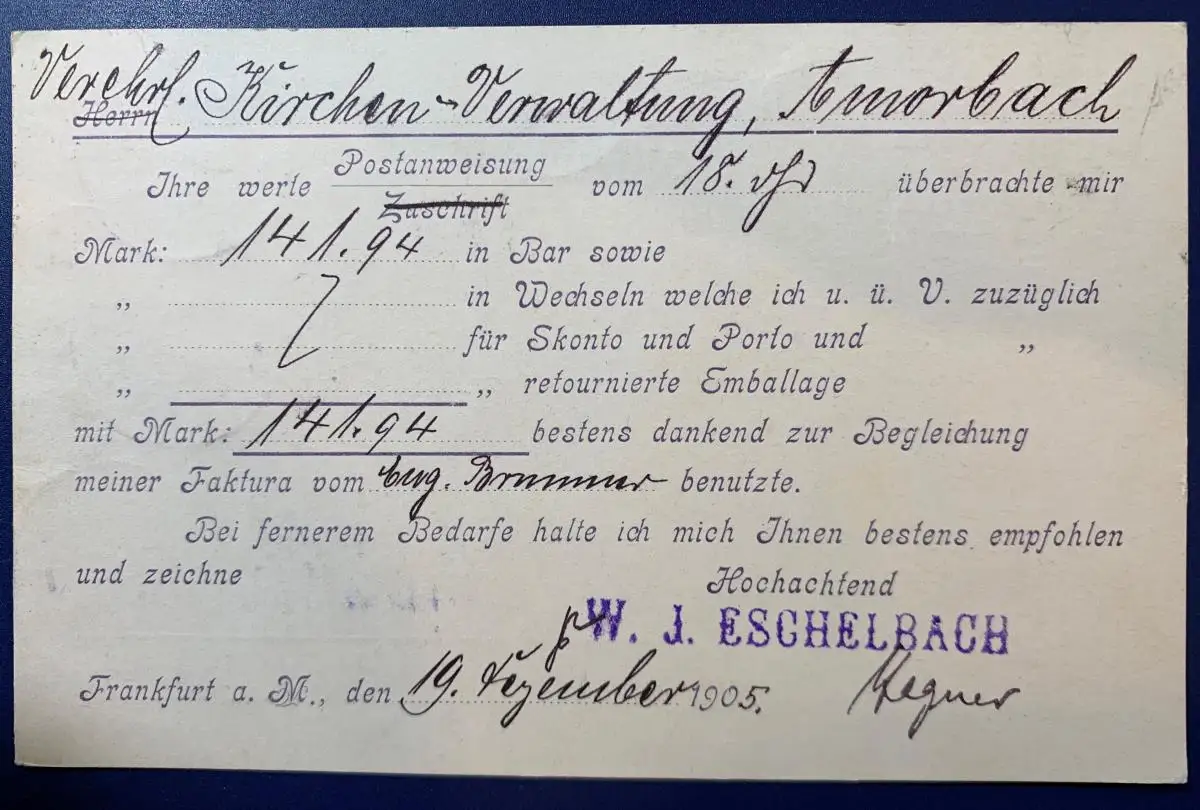 Verehrl. Kirchen-Verwaltung, Amorbach
Herrn
Postanweisung
Ihre werte vom 18. ds überbrachte mir
Zuschrift
Mark: 141.94 in Bar sowie
„ in Wechseln welche ich u. ü. V. zuzüglich
„ für Skonto und Porto und „
„ „ retournierte Emballage
mit Mark: 141.94 bestens dankend zur Begleichung
meiner Faktura vom Eug. benutzte.
Bei fernerem Bedarfe halte ich mich Ihnen bestens empfohlen
und zeichne
Hochachtend
p W. J. ESCHELBACH
Frankfurt a. M., den 19. Dezember 1905.